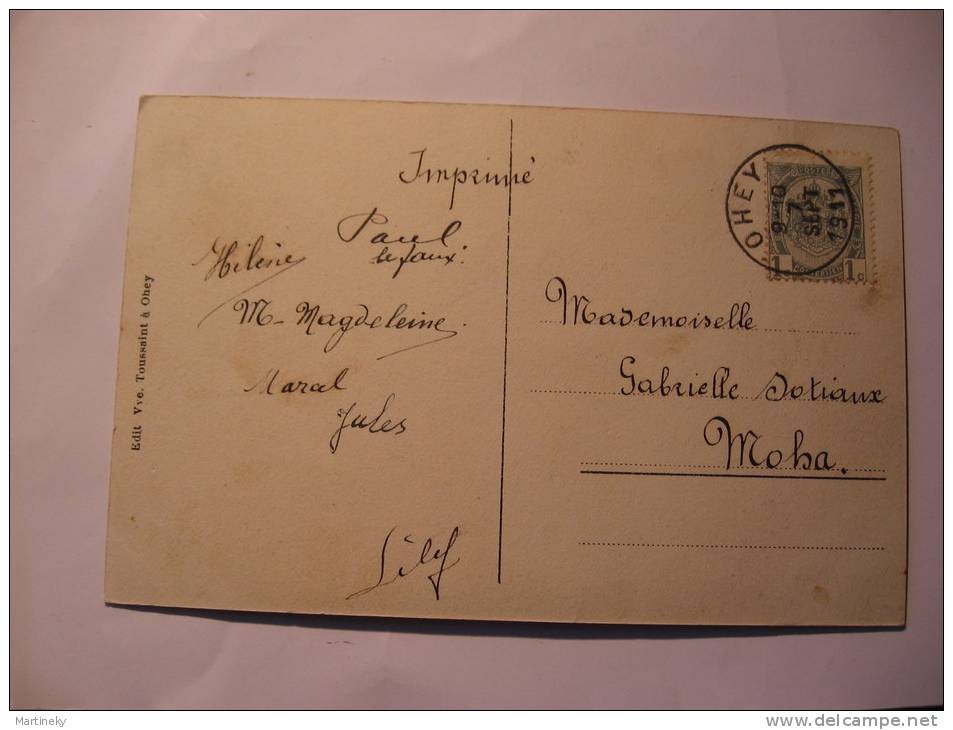 Imprimé
Paul
Hélène
M- Magdeleine.
Marcel
Jules
Lily
Edit Vve. Toussaint à Ohey
OHEY
9-10
7
SEPT
1911
1c 1c
Mademoiselle
Gabrielle Dotiaux
Moha.
Martineky
www.delcampe.net